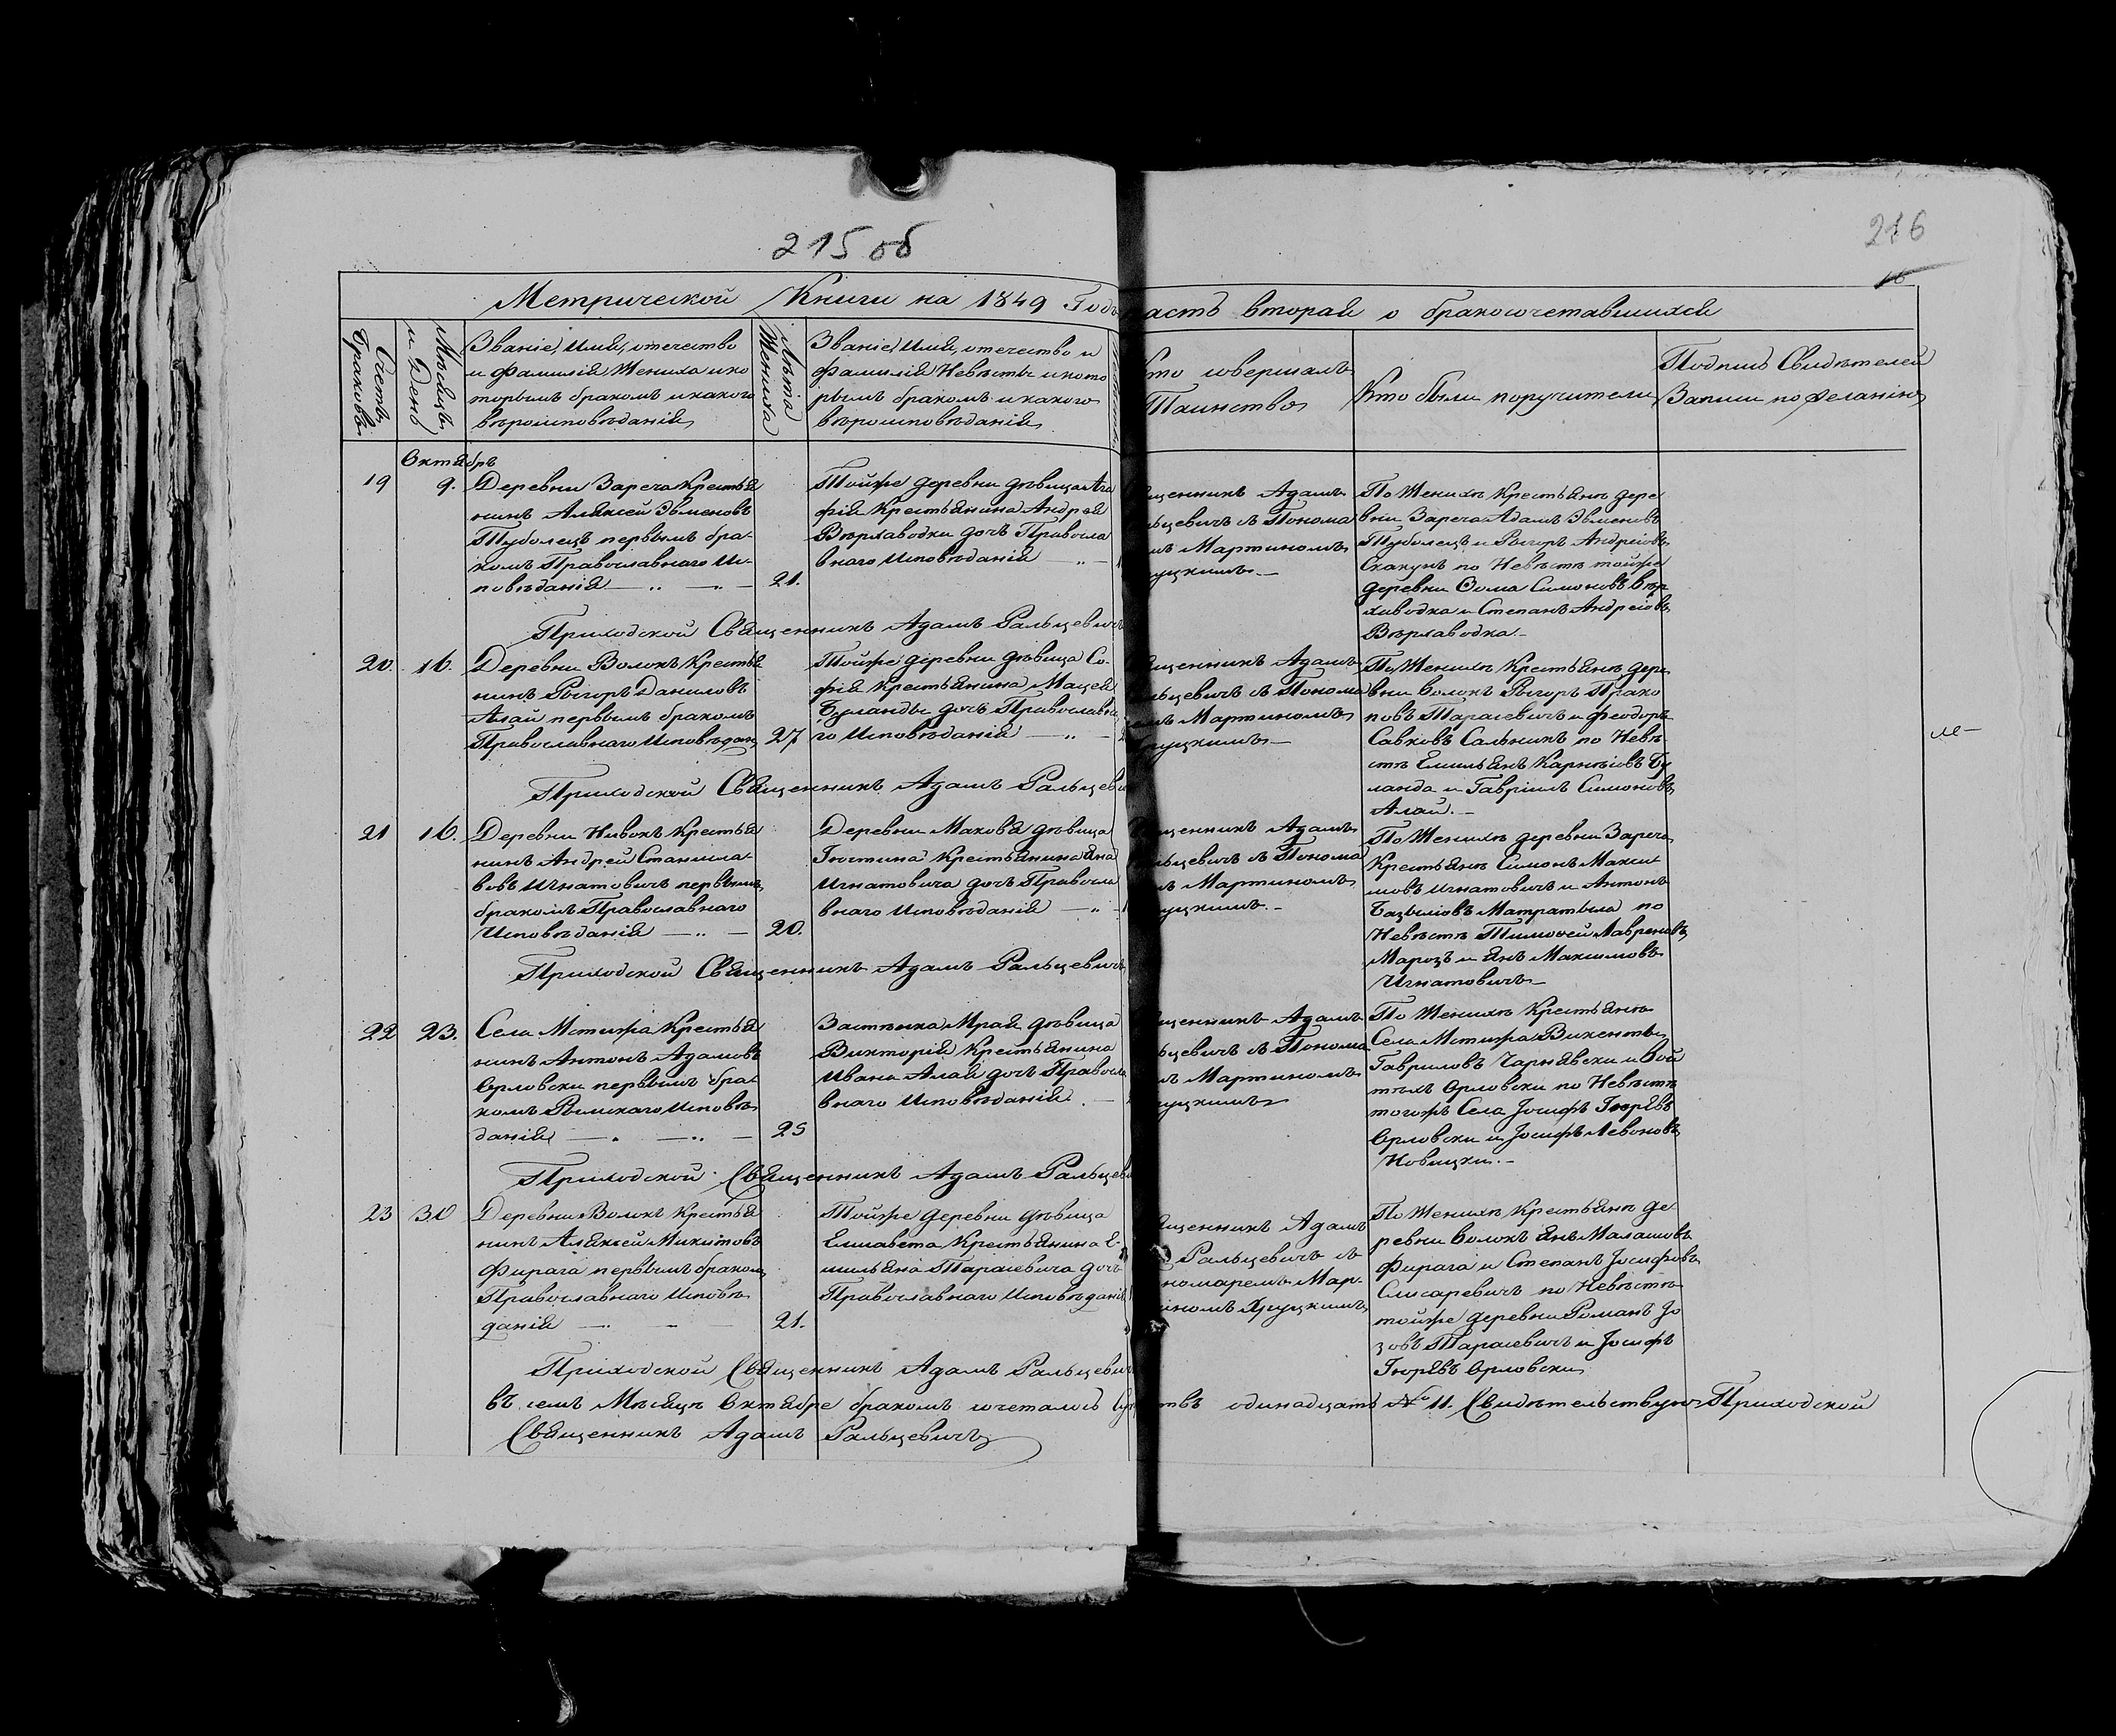 215 об
216
16
Метрической Книги на 1849 Годъ
асть вторая о бракосочетавшихся
Счетъ Браковъ
Мѣсяцъ и День
Званіе, имя, отечество
и фамилія Жениха и ко
торымъ бракомъ и какого
вѣроисповѣданія
Лѣта Жениха
Званіе, имя, отечество и
фамилія Невѣсты и кото
рымъ бракомъ и какого
вѣроисповѣданія
Кто совершалъ
Таинство
Кто были поручители
Подпись Свидѣтелей
Записи по желанію
Октябрь
19
9.
Деревни Зареча Крестья
нинъ Алексей Эвменовъ
Туболецъ первымъ бра-
комъ Православнаго Ис-
повѣданія
21.
Тойже деревни дѣвица Ага
фія Крестьянина Андрея
Вѣрхаводки дочь Правосла
внаго Исповѣданія
щенникъ Адамъ
льцевичъ с Понома
мъ Мартиномъ
уцкимъ
По Женихѣ Крестьянѣ дере
вни Зареча Адамъ Эвменовъ
Туболецъ и Рыгоръ Андреіовъ
Скакунъ по Невѣстѣ тойже
деревни Ѳома Симоновъ Вѣр
хаводка и Степанъ Андреіовъ
Вѣрхаводка
Приходской Священникъ Адамъ Ральцевичъ
20.
16.
Деревни Волокъ Крестья
нинъ Рыгоръ Даниловъ
Алай первымъ бракомъ
Православнаго Исповѣдан
27
Тойже деревни дѣвица Со-
фія Крестьянина Мацея
Буланды дочь Православна
го Исповѣданія
щенникъ Адамъ
льцевичъ с Понома
мъ Мартиномъ
уцкимъ
По Женихѣ Крестьянѣ дере
вни Волокъ Рыгоръ Прако
повъ Тарасевичъ и Феодоръ
Савковъ Сальникъ по Невѣ
стѣ Емильянъ Карнѣіовъ Бу
ланда и Гавріилъ Симоновъ
Алай.
Приходской Священникъ Адамъ Ральцеви
21
16.
Деревни Нивокъ Крестья
нинъ Андрей Станисла-
вовъ Игнатовичъ первымъ
бракомъ Православнаго
Исповѣданія
20.
Деревни Маковя дѣвица
Гюстина Крестьянина Яна
Игнатовича дочь Правосла
внаго Исповѣданія
щенникъ Адамъ
льцевичъ с Понома
ъ Мартиномъ
уцкимъ
По Женихѣ деревни Зареча
Крестьянѣ Симонъ Макси
мовъ Игнатовичъ и Антонъ
Базыліовъ Матратыла по
Невѣстѣ Тимоѳей Лавреновъ
Марозъ и Янъ Максимовъ
Игнатовичъ
Приходской Священникъ Адамъ Ральцевичъ
22
23.
Села Мстижа Крестья
нинъ Антонъ Адамовъ
Орловски первымъ бра-
комъ Рымскаго Исповѣ
данія
25
Застѣнка Мрай дѣвица
Викторія Крестьянина
Ивана Алая дочь Правосла
внаго Исповѣданія
щенникъ Адамъ
ьцевичъ с Понома
ъ Мартиномъ
уцкимъ
По Женихѣ Крестьянѣ
Села Мстижа Викентьи
Гавриловъ Чарнявски и Вой
тѣхъ Орловски по Невѣстѣ
тогожъ Села Іосифъ Гюрьевъ
Орловски и Іосифъ Левоновъ
Новицки.
Приходской Священникъ Адамъ Ральцеви
23
30
Деревни Волокъ Крестья
нинъ Алексей Микитовъ
Фирага первымъ браком
Православнаго Исповѣ
данія
21.
Тойже деревни дѣвица
Елисавета Крестьянина Е-
мильяна Тарасевича дочь
Православнаго Исповѣданія
щенникъ Адамъ
Ральцевичъ с
номаремъ Мар-
иномъ Хруцкимъ
По Женихѣ Крестьянѣ де-
ревни Волокъ Янъ Малашовъ
Фирага и Степанъ Іосифовъ
Слисаревичъ по Невѣстѣ
тойже деревни Романъ Іо
зовъ Тарасевичъ и Іосифъ
Гюрьевъ Орловски
Приходской Священникъ Адамъ Ральцевич
въ семъ Мѣсяцѣ Октябре бракомъ сочеталось Суп
твъ одинадцать № 11. Свидѣтельствую Приходской
Священникъ Адамъ Ральцевичъ